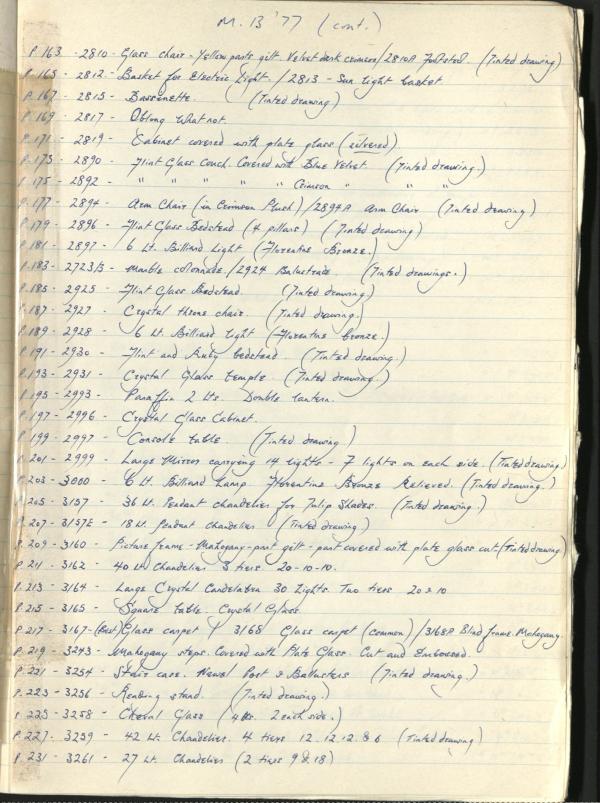 M. 13 '77 (cont.)
P. 163 - 2810 - Glass chair - Yellow parts gilt. Velvet dark crimson / 2810A Footstool. (Tinted drawing)
P. 165 - 2812 - Basket for Electric light. / 2813 - Sun light basket
P. 167 - 2815 - Bassenette. (Tinted drawing)
P. 169 - 2817 - Oblong What not.
P. 171 - 2819 - Cabinet covered with plate glass (silvered)
P. 173 - 2890 - Flint Glass Couch. Covered with Blue Velvet. (Tinted drawing.)
P. 175 - 2892 - " " " " " Crimson " " "
P. 177 - 2894 - Arm Chair (in Crimson Plush) / 2894A Arm Chair (Tinted drawing)
P. 179 - 2896 - Flint Glass Bedstead (4 pillars) (Tinted drawing)
P. 181 - 2897 - 6 Lt. Billiard Light (Florentine Bronze.)
P. 183 - 2923/3 - Marble colonnade / 2924 Balustrade. (Tinted drawings.)
P. 185 - 2925 - Flint Glass Bedstead. (Tinted drawing)
P. 187 - 2927 - Crystal throne chair. (Tinted drawing.)
P. 189 - 2928 - 6 Lt. Billiard light (Florentine bronze.)
P. 191 - 2930 - Flint and Ruby bedstead. (Tinted drawing.)
P. 193 - 2931 - Crystal Glass temple. (Tinted drawing.)
P. 195 - 2993 - Paraffin 2 Lts. Double lantern.
P. 197 - 2996 - Crystal Glass Cabinet.
P. 199 - 2997 - Console table. (Tinted drawing)
P. 201 - 2999 - Large Mirror carrying 14 lights - 7 lights on each side. (Tinted drawing)
P. 203 - 3000 - 6 Lt. Billiard Lamp Florentine Bronze Relieved. (Tinted drawing.)
P. 205 - 3157 - 36 Lt. Pendant chandelier for Tulip Shades. (Tinted drawing.)
P. 207 - 3157E - 18 Lt. Pendant chandelier (Tinted drawing)
P. 209 - 3160 - Picture frame - Mahogany - part gilt - part covered with plate glass cut (Tinted drawing)
P. 211 - 3162 - 40 Lt Chandelier 3 tiers 20-10-10.
P. 213 - 3164 - Large Crystal Candelabra 30 Lights. Two tiers 20 & 10
P. 215 - 3165 - Square table. Crystal Glass.
P. 217 - 3167 - (Best) Glass carpet / 3168 Glass carpet (common) / 3168A Blind frame. Mahogany.
P. 219 - 3243 - Mahogany steps. Covered with Plate Glass. Cut and Embossed.
P. 221 - 3254 - Stair case. Newel Post & Balusters (Tinted drawing.)
P. 223 - 3256 - Reading stand. (Tinted drawing.)
P. 225 - 3258 - Cheval Glass (4 lts. 2 each side.)
P. 227 - 3259 - 42 Lt. Chandelier. 4 tiers 12.12.12. & 6 (Tinted drawing)
P. 231 - 3261 - 27 Lt. Chandelier (2 tiers 9 & 18)